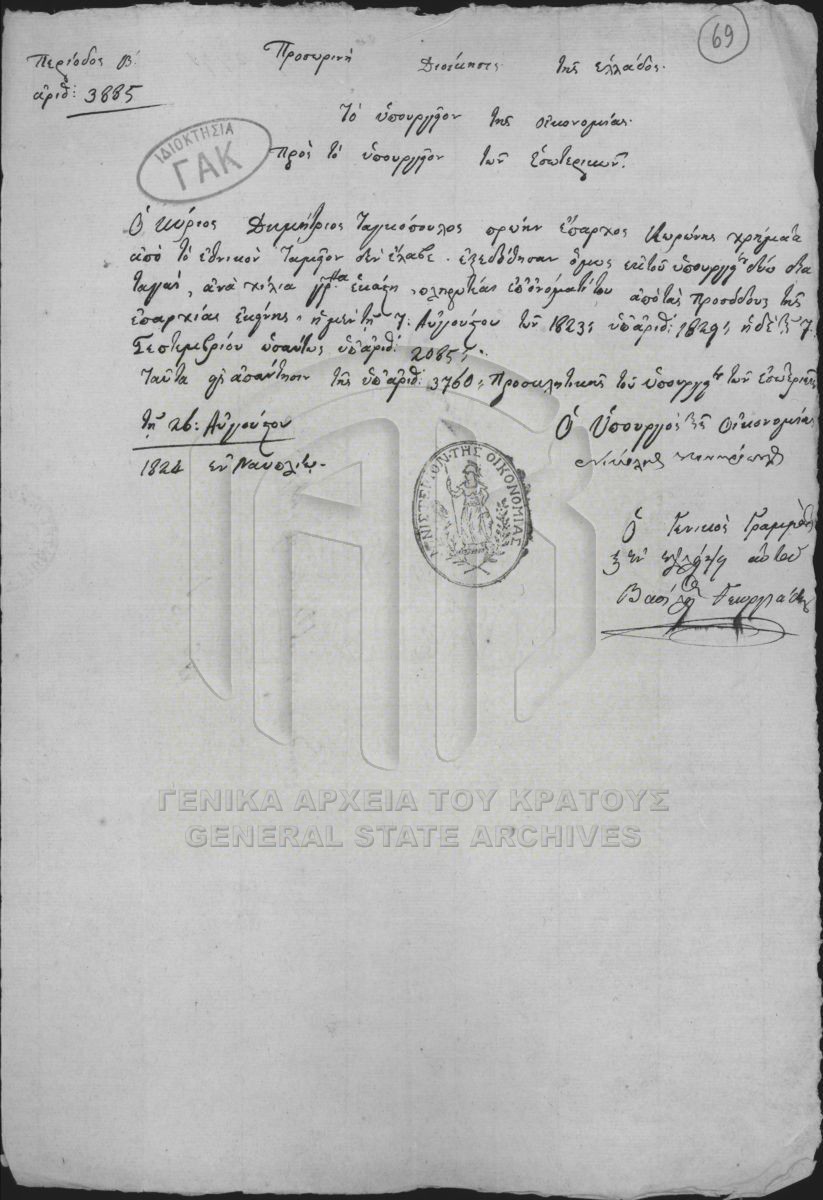 69
Περίοδος Β.
Προσωρινὴ Διοίκησις τῆς Ἑλλάδος.
ἀριθ: 3885
Τὸ ὑπουργεῖον τῆς οἰκονομίας.
Πρὸς τὸ ὑπουργεῖον τῶν Ἐσωτερικῶν.
ΙΔΙΟΚΤΗΣΙΑ
ΓΑΚ
Ὁ Κύριος Δημήτριος πρώην ἔπαρχος Κορώνης χρήματα
ἀπὸ τὸ ἐθνικὸν Ταμεῖον δὲν ἔλαβε. ἐξεδόθησαν ὅμως ἐκ τοῦ ὑπουργ δύω δια
ταγαὶ, ἀνὰ χίλια γρ ἑκάστη, πληρωτέαι ἐπ' ὀνόματί του ἀπὸ τὰς προσόδους τῆς
ἐπαρχίας ἐκείνης, ἡ μὲν τῇ 7 Αὐγούστου τῶν 1823, ὑπ' ἀριθ: 1829, ἡ δὲ τῇ 7
Σεπτεμβρίου ὡσαύτως ὑπ' ἀριθ: 2085,
Ταῦτα εἰς ἀπάντησιν τῆς ὑπ' ἀριθ: 3760, Προσκλητικῆς τοῦ ὑπουργ τῶν ἐσωτερικῶν
τῇ 26: Αὐγούστου
1824 ἐν Ναυπλίῳ.
Ὁ Ὑπουργὸς τῆς οἰκονομίας
ΜΙΝΙΣΤΕΡΙΟΝ ΤΗΣ ΟΙΚΟΝΟΜΙΑΣ
Ὁ Γενικὸς Γραμματεὺς
ἐν αὐτοῦ
Βασίλ Γεωργιάδης
ΓΕΝΙΚΑ ΑΡΧΕΙΑ ΤΟΥ ΚΡΑΤΟΥΣ
GENERAL STATE ARCHIVES